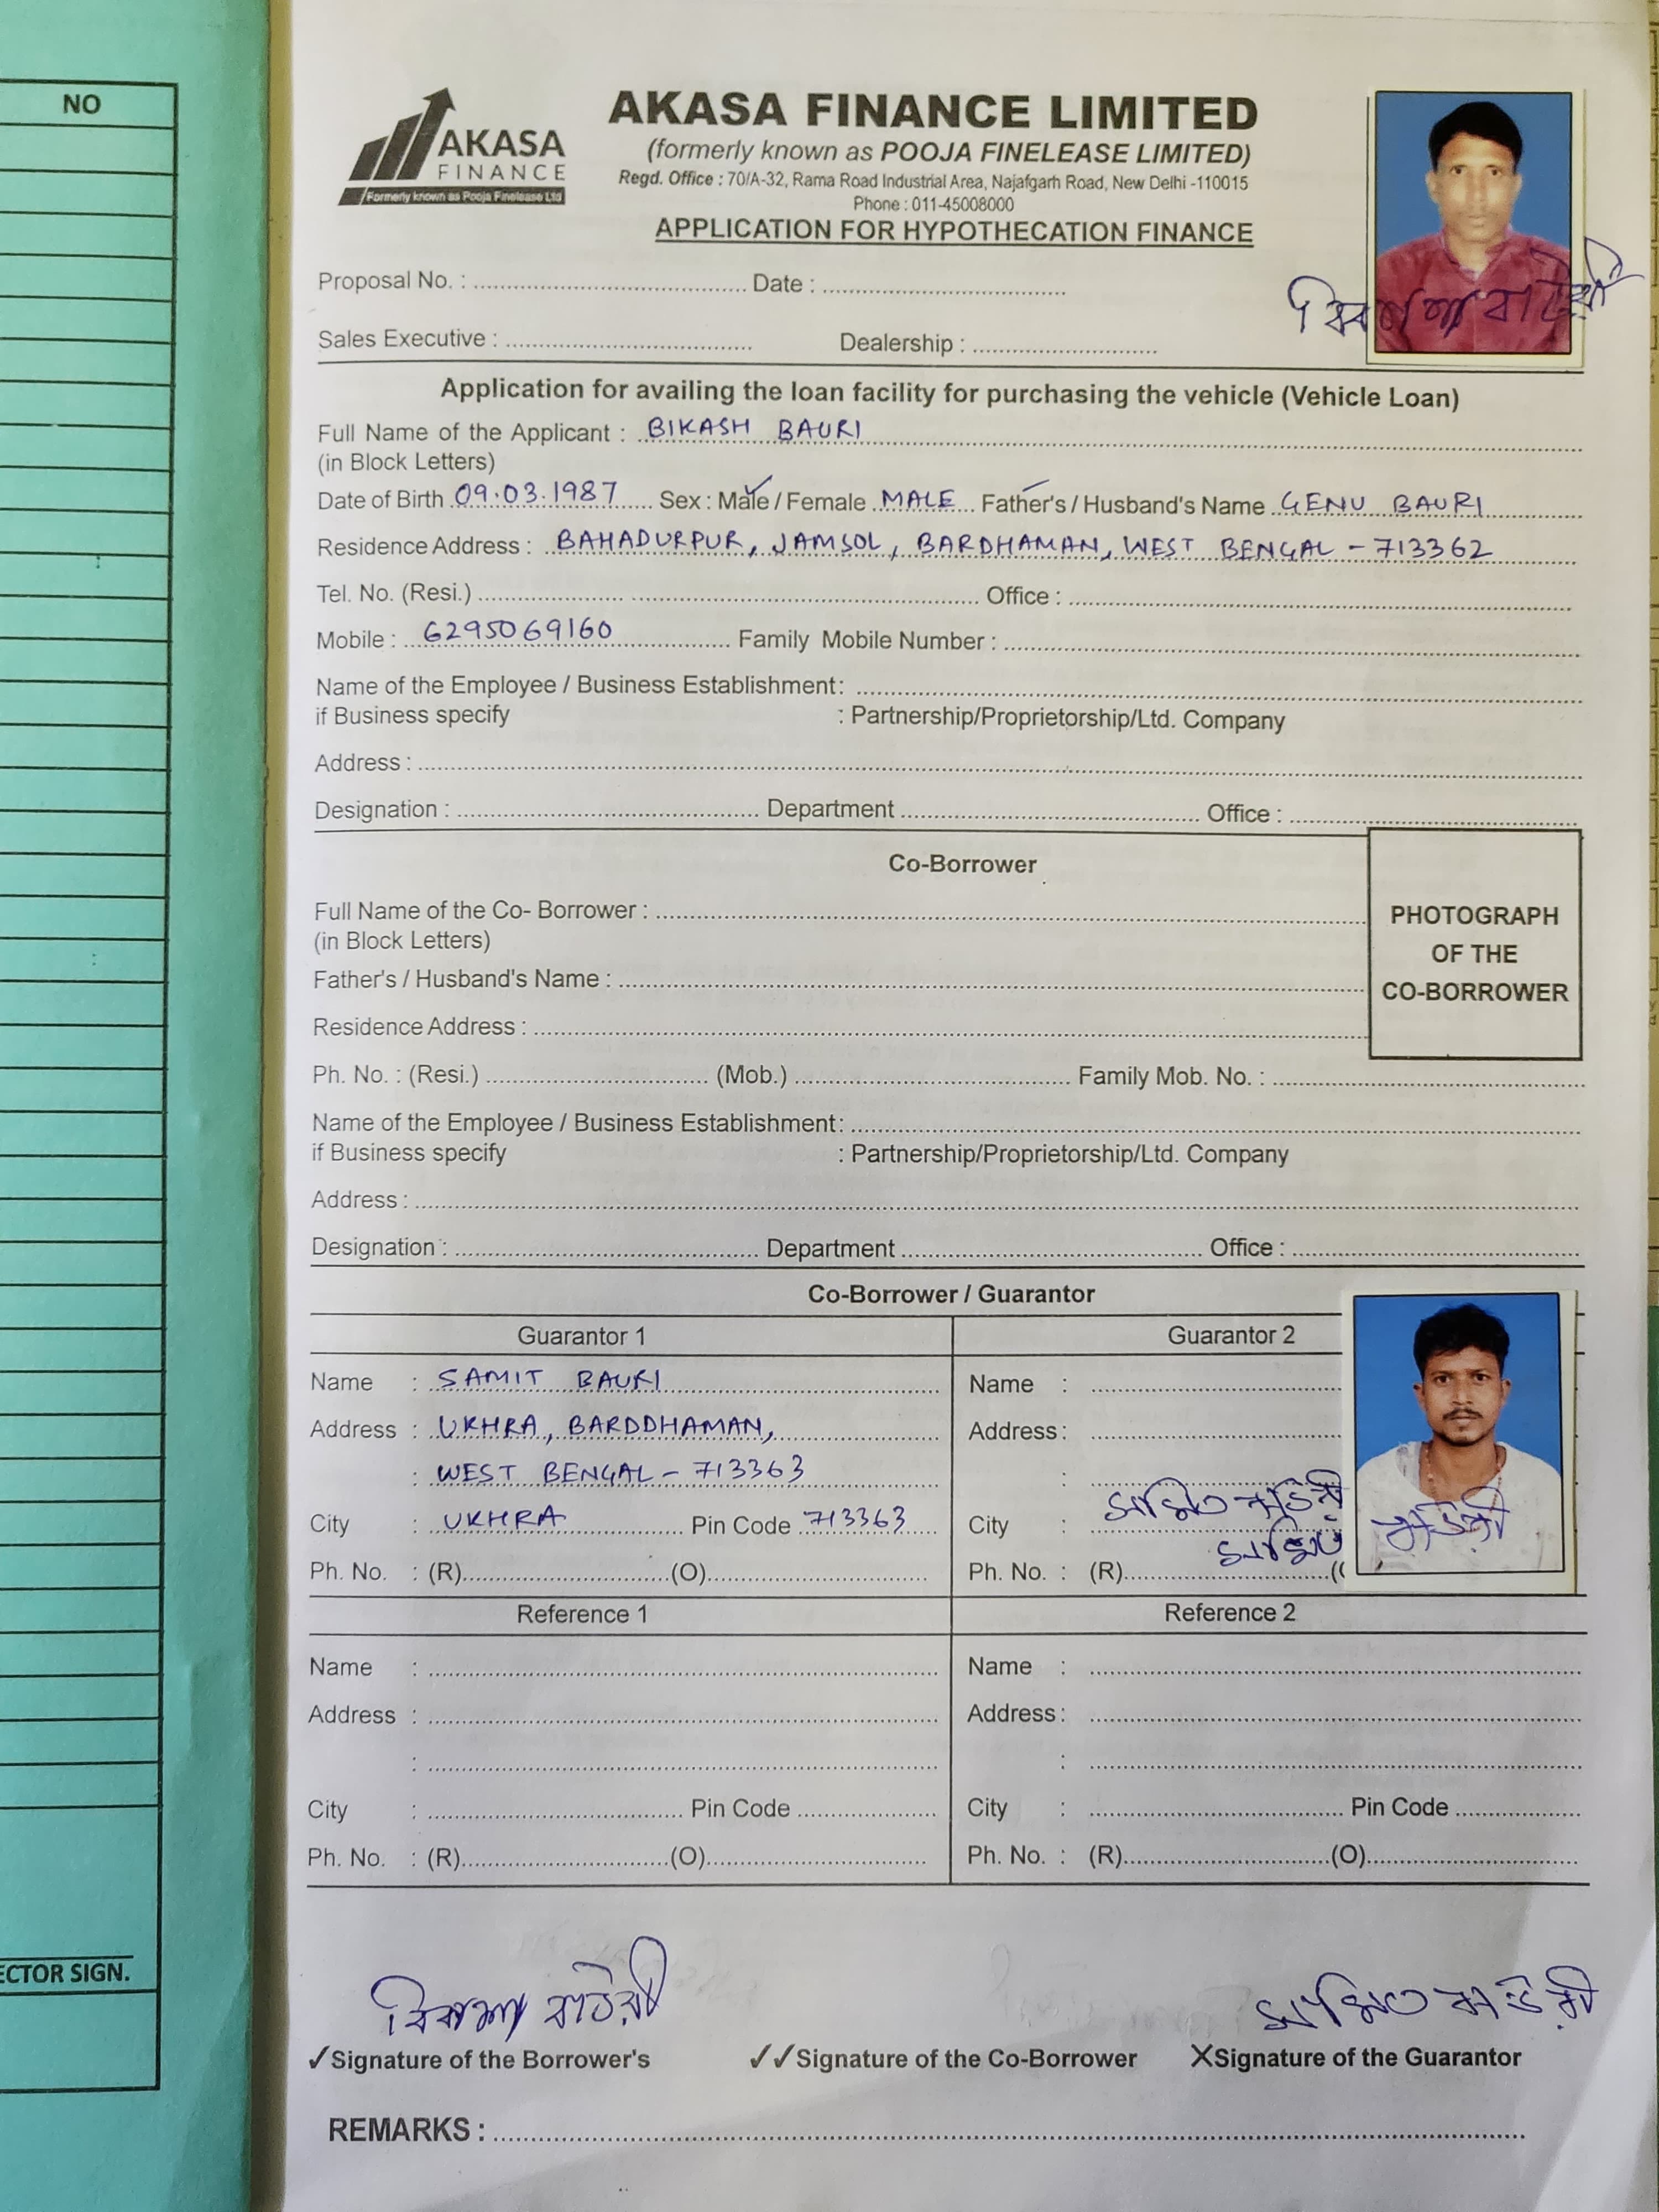 NO
AKASA
FINANCE
Formerly known as Pooja Finelease Ltd
AKASA FINANCE LIMITED
(formerly known as POOJA FINELEASE LIMITED)
Regd. Office : 70/A-32, Rama Road Industrial Area, Najafgarh Road, New Delhi -110015
Phone : 011-45008000
APPLICATION FOR HYPOTHECATION FINANCE
Proposal No. : Date :
বিকাশ বাউরী
Sales Executive : Dealership :
Application for availing the loan facility for purchasing the vehicle (Vehicle Loan)
Full Name of the Applicant : BIKASH BAURI
(in Block Letters)
Date of Birth 09.03.1987 Sex : Male / Female MALE Father's / Husband's Name GENU BAURI
Residence Address : BAHADURPUR, JAMSOL, BARDHAMAN, WEST BENGAL - 713362
Tel. No. (Resi.) Office :
Mobile : 6295069160 Family Mobile Number :
Name of the Employee / Business Establishment:
if Business specify : Partnership/Proprietorship/Ltd. Company
Address :
Designation : Department Office :
Co-Borrower
Full Name of the Co- Borrower :
(in Block Letters)
PHOTOGRAPH
OF THE
CO-BORROWER
Father's / Husband's Name :
Residence Address :
Ph. No. : (Resi.) (Mob.) Family Mob. No. :
Name of the Employee / Business Establishment:
if Business specify : Partnership/Proprietorship/Ltd. Company
Address :
Designation : Department Office :
Co-Borrower / Guarantor
Guarantor 1 Guarantor 2
Name : SAMIT BAURI Name :
Address : UKHRA, BARDDHAMAN, Address :
: WEST BENGAL - 713363 :
সামিত বাউরী
City : UKHRA Pin Code 713363 City :
সামিত বাউরী
Ph. No. : (R) (O) Ph. No. : (R) (
Reference 1 Reference 2
Name : Name :
Address : Address :
: :
City : Pin Code City : Pin Code
Ph. No. : (R) (O) Ph. No. : (R) (O)
ECTOR SIGN.
বিকাশ বাউরী সামিত বাউরী
✓Signature of the Borrower's ✓✓Signature of the Co-Borrower XSignature of the Guarantor
REMARKS :